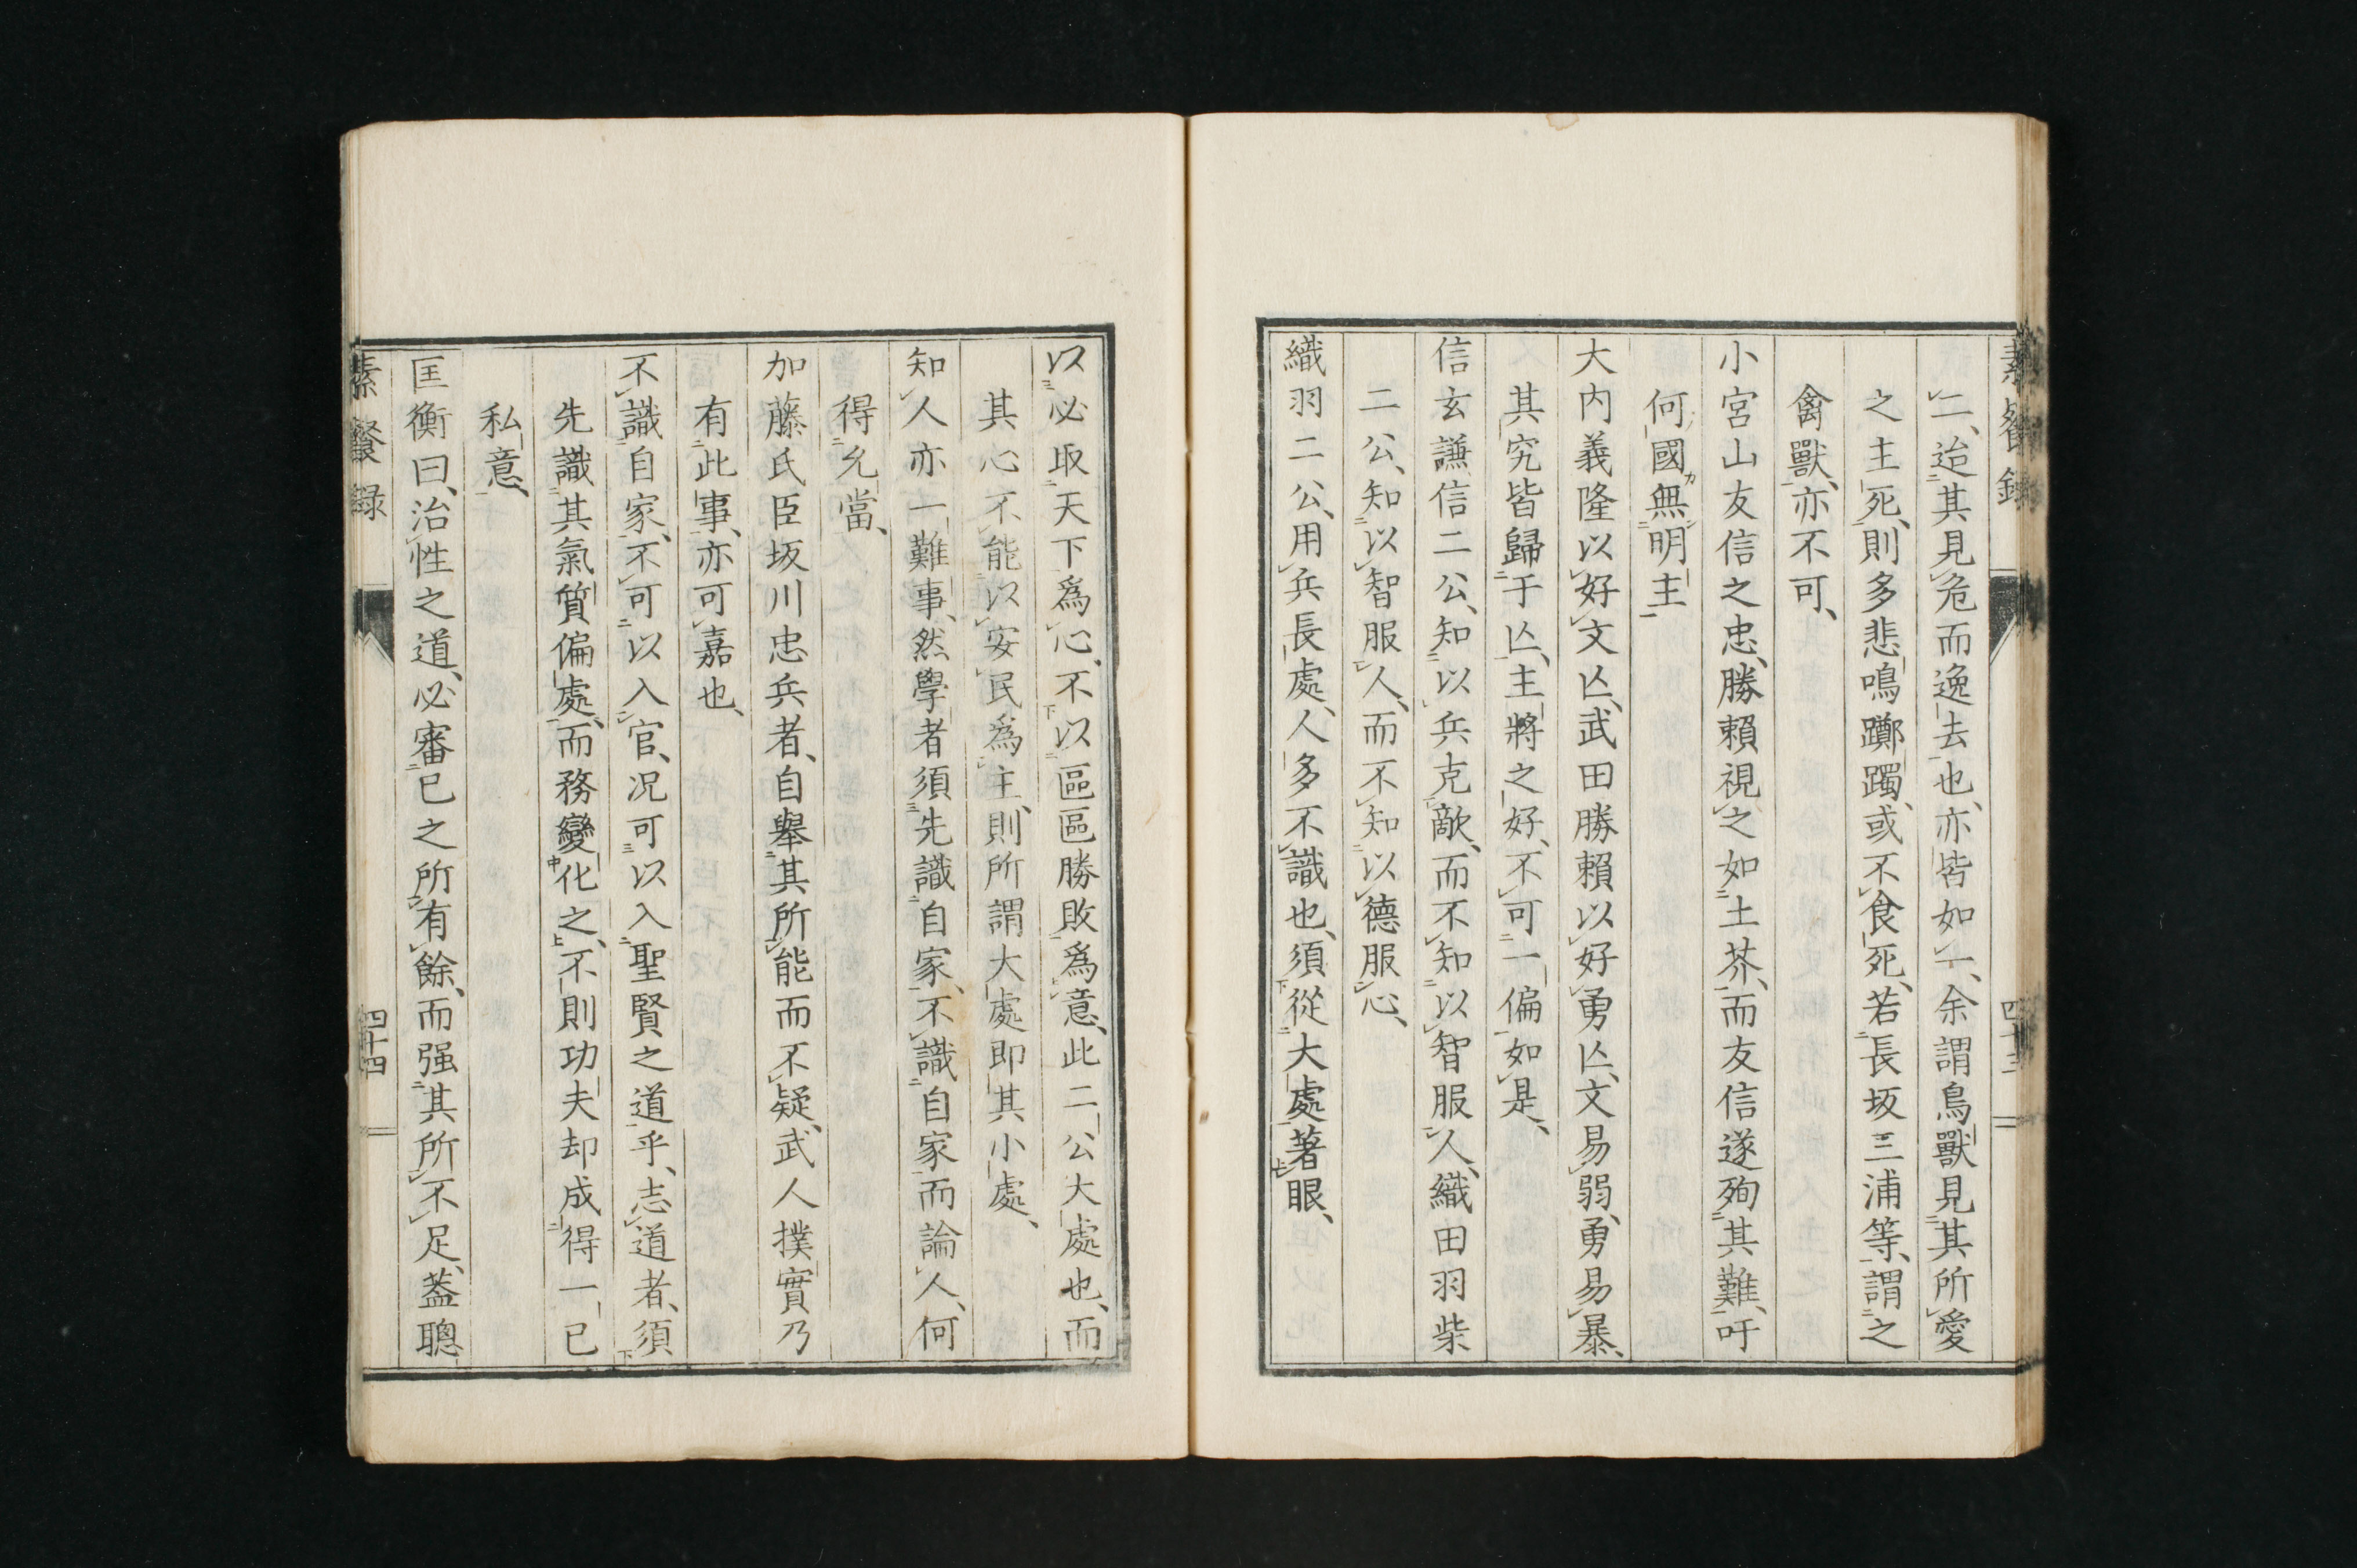 素餐錄 四十三
二、迨其見危而逸去也、亦皆如一、余謂鳥獸見其所愛
之主死、則多悲鳴躑躅、或不食死、若長坂三浦等、謂之
禽獸、亦不可、
小宮山友信之忠、勝賴視之如土芥、而友信遂殉其難、吁
何國無明主
大内義隆以好文亾、武田勝賴以好勇亾、文易弱、勇易暴、
其究皆歸于亾、主將之好、不可一偏如是、
信玄謙信二公、知以兵克敵、而不知以智服人、織田羽柴
二公、知以智服人、而不知以德服心、
織羽二公、用兵長處、人多不識也、須從大處著眼、
以必取天下爲心、不以區區勝敗爲意、此二公大處也、而
其心不能以安民爲主、則所謂大處即其小處、
知人亦一難事、然學者須先識自家、不識自家而論人、何
得允當、
加藤氏臣坂川忠兵者、自舉其所能而不疑、武人撲實乃
有此事、亦可嘉也、
不識自家、不可以入官、况可以入聖賢之道乎、志道者、須
先識其氣質偏處、而務變化之、不則功夫却成得一已
私意、
匡衡曰、治性之道、必審已之所有餘、而强其所不足、蓋聰
素餐録 四十四